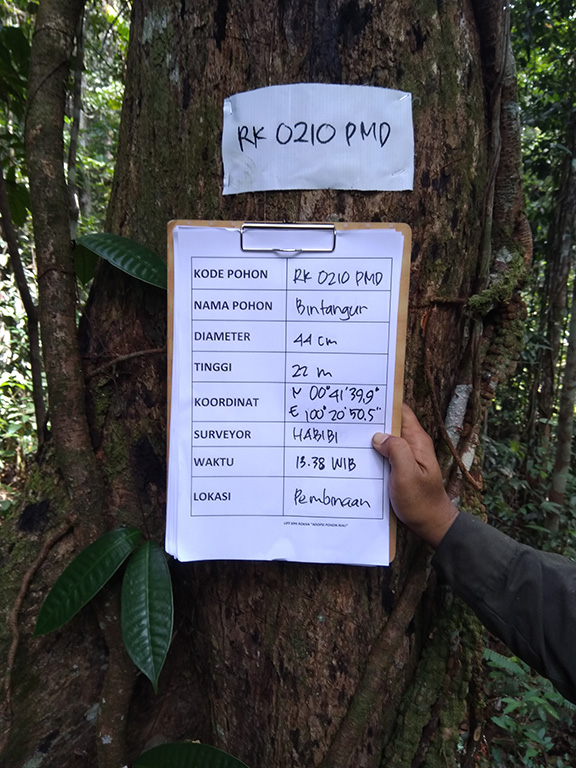 RK 0210 PMD
KODE POHON RK 0210 PMD
NAMA POHON Bintangur
DIAMETER 44 cm
TINGGI 22 m
KOORDINAT N 00°41'39,9" E 100°20'50,5"
SURVEYOR HABIBI
WAKTU 13.38 WIB
LOKASI Pembinaan
"ADOPSI POHON RIAU"